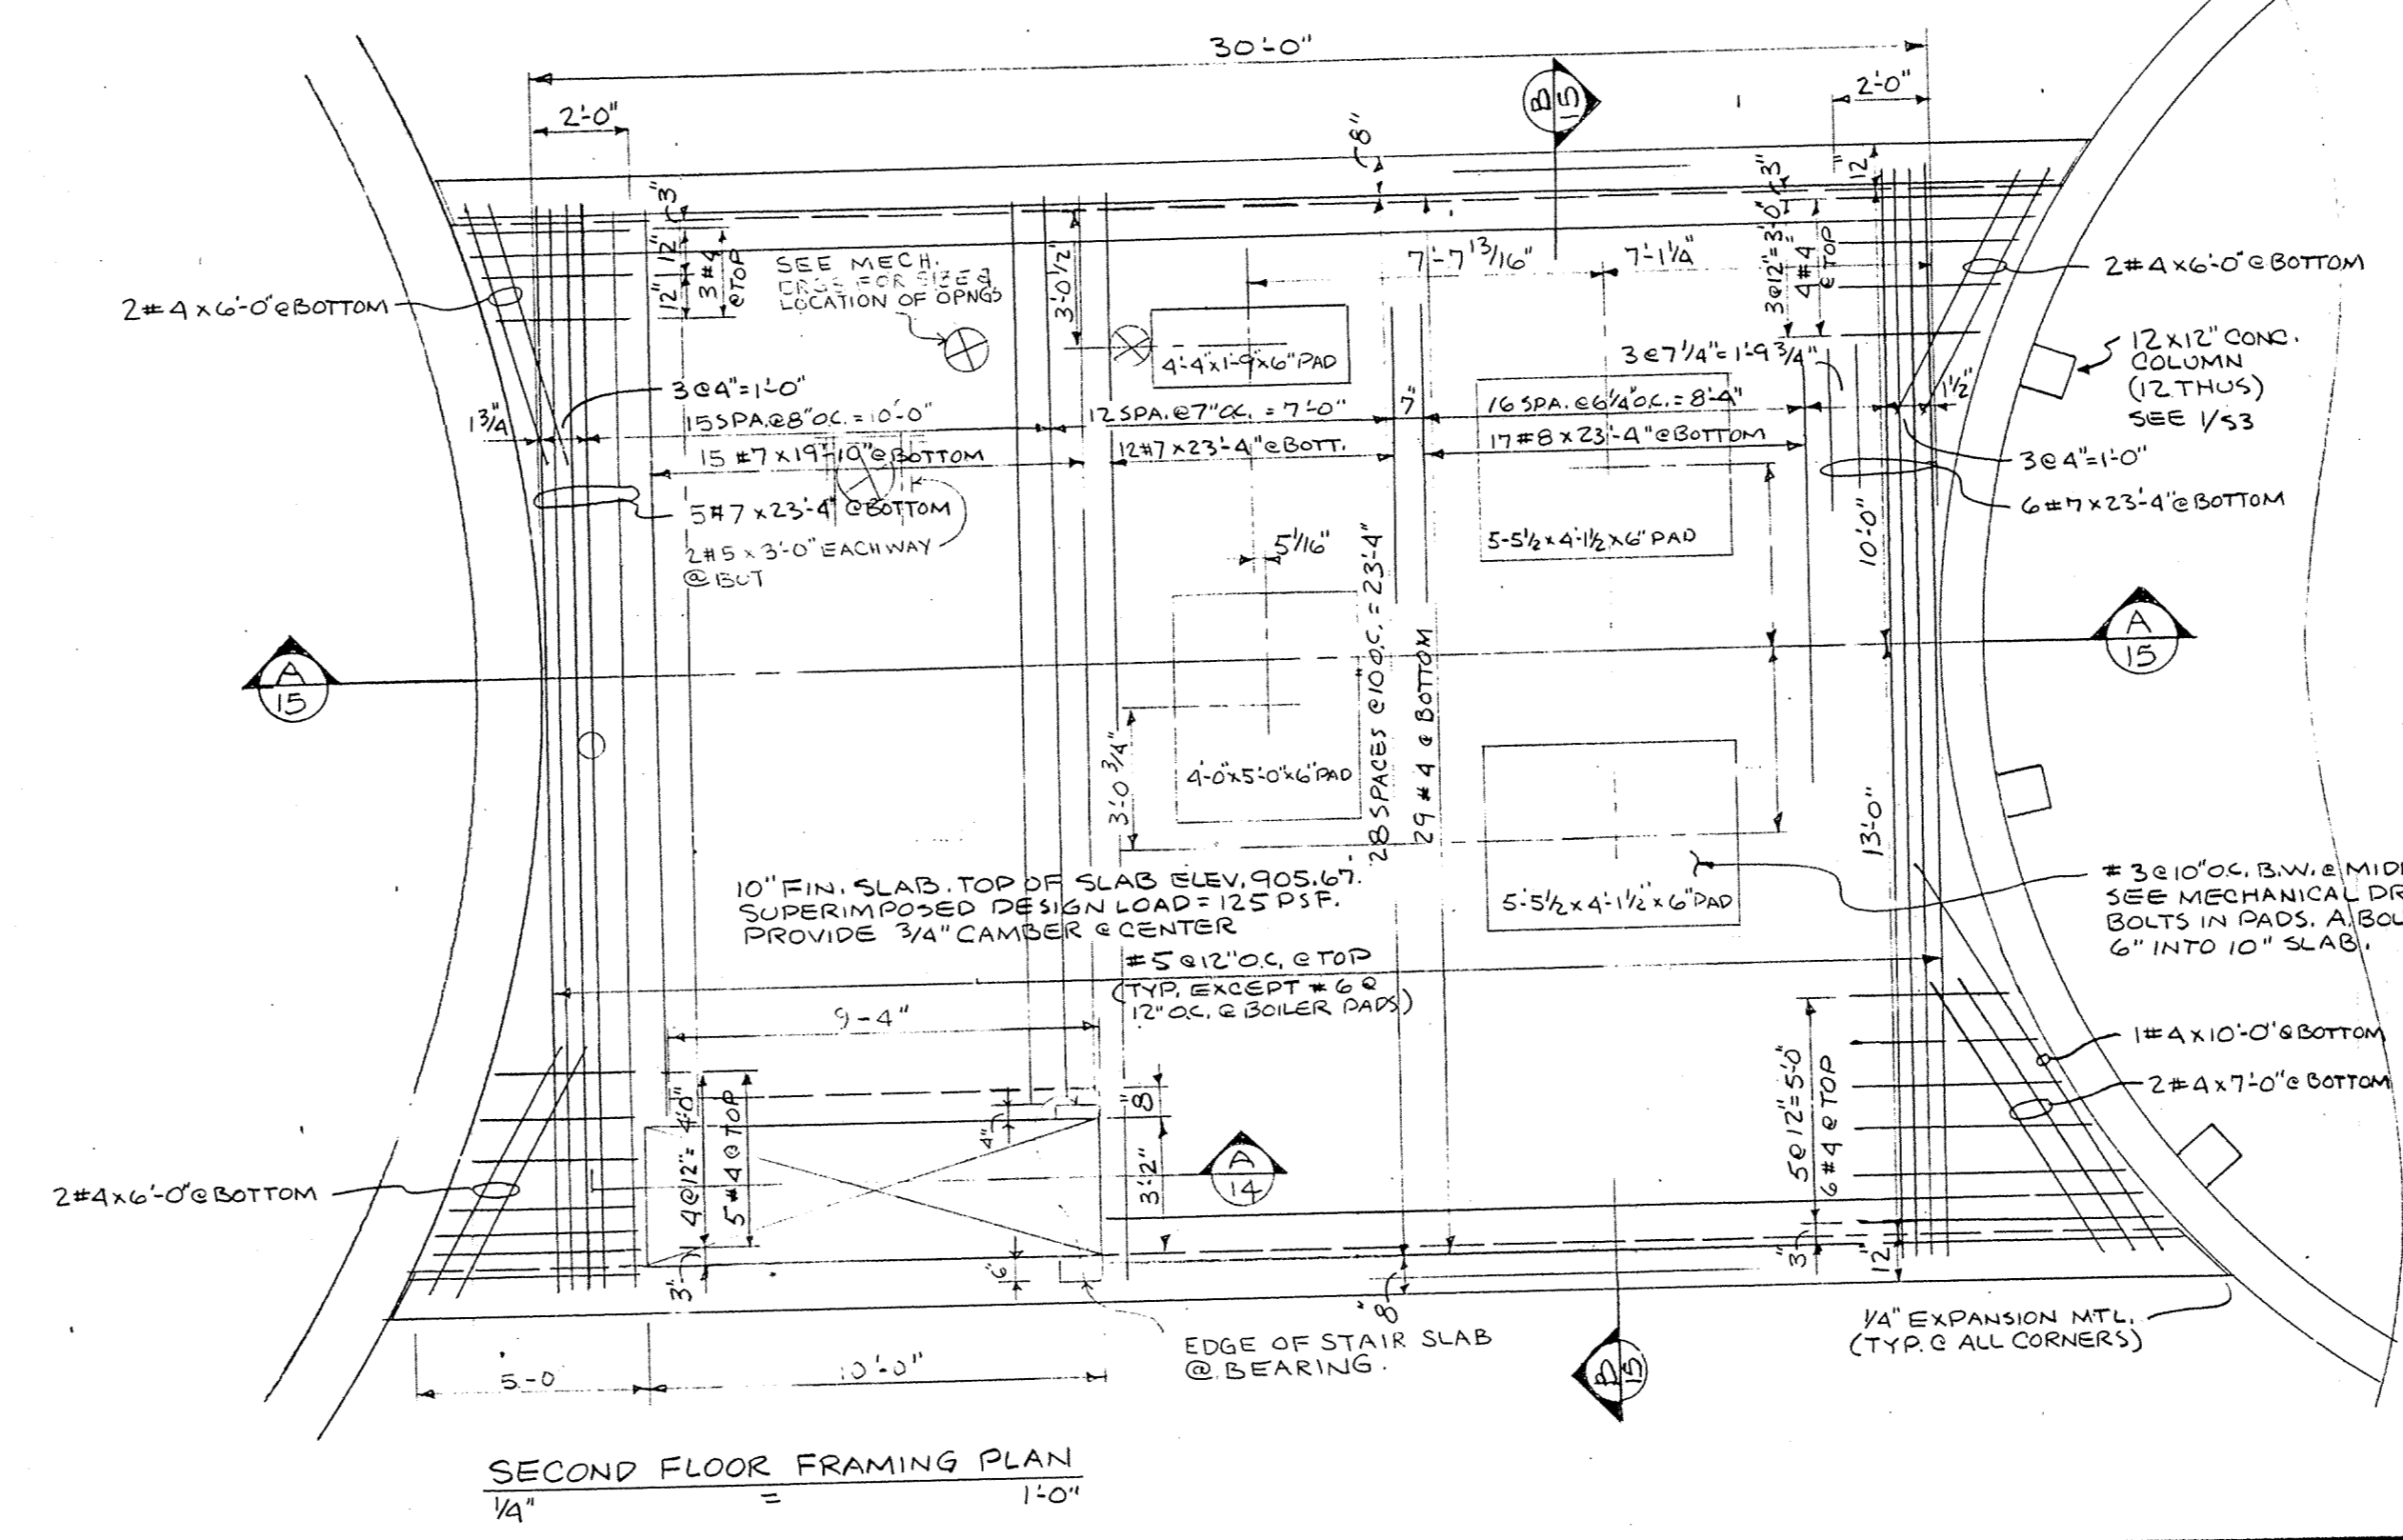 30'-0"
2'-0"
2'-0"
B
15
8"
3"
12"
12"
3 #4
@TOP
SEE MECH.
DRGS FOR SIZE &
LOCATION OF OPNGS
3'-0 1/2"
7'-7 13/16"
7'-1 1/4"
3@12"=3'-0"
3"
4 #4
@ TOP
12"
2#4x6'-0"@BOTTOM
2#4x6'-0"@BOTTOM
4'-4"x1'-9"x6" PAD
12x12" CONC.
COLUMN
(12 THUS)
SEE 1/S3
3@7 1/4"=1'-9 3/4"
1 1/2"
3@4"=1'-0"
1 3/4"
15 SPA.@8"O.C.=10'-0"
12 SPA.@7"O.C.=7'-0"
7"
16 SPA.@6 1/4"O.C.=8'-4"
15 #7x19'-10"@BOTTOM
12#7x23'-4"@BOTT.
17#8x23'-4"@BOTTOM
3@4"=1'-0"
5#7x23'-4"@BOTTOM
6#7x23'-4"@BOTTOM
2#5x3'-0" EACH WAY
@BOT
5/16"
5-5 1/2x4-1 1/2x6" PAD
10'-0"
28 SPACES @10"O.C.=23'-4"
29 #4 @ BOTTOM
A
15
A
15
3'-0 3/4"
4'-0"x5'-0"x6" PAD
13'-0"
10" FIN. SLAB. TOP OF SLAB ELEV. 905.67.
SUPERIMPOSED DESIGN LOAD=125 PSF.
PROVIDE 3/4" CAMBER @ CENTER
5-5 1/2x4-1 1/2x6" PAD
#3@10"O.C. B.W.@MID
SEE MECHANICAL DR
BOLTS IN PADS. A.BOL
6" INTO 10" SLAB.
#5@12"O.C. @TOP
(TYP. EXCEPT #6@
12"O.C.@BOILER PADS)
9-4"
4@12"=4'-0"
5#4@TOP
3"
4"
8"
3'-2"
6"
A
14
5@12"=5'-0"
6#4@TOP
3"
12"
1#4x10'-0"@BOTTOM
2#4x7'-0"@BOTTOM
2#4x6'-0"@BOTTOM
8"
B
15
1/4" EXPANSION MTL.
(TYP.@ALL CORNERS)
EDGE OF STAIR SLAB
@ BEARING.
5-0
10'-0"
SECOND FLOOR FRAMING PLAN
1/4" = 1'-0"